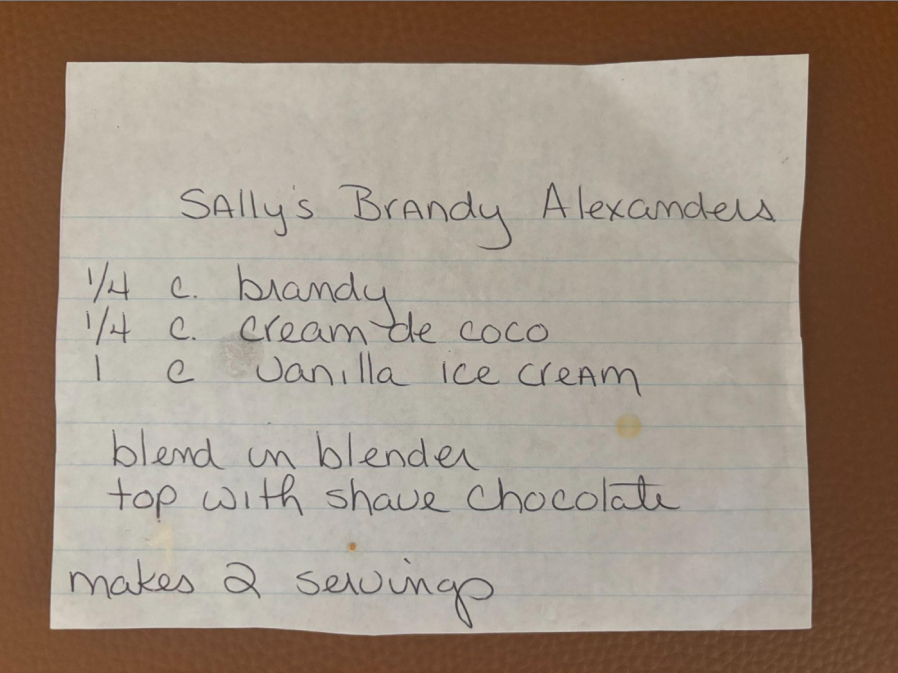 Sally's Brandy Alexanders
1/4 c. brandy
1/4 c. cream de coco
1 c vanilla ice cream
blend in blender
top with shave chocolate
makes 2 servings